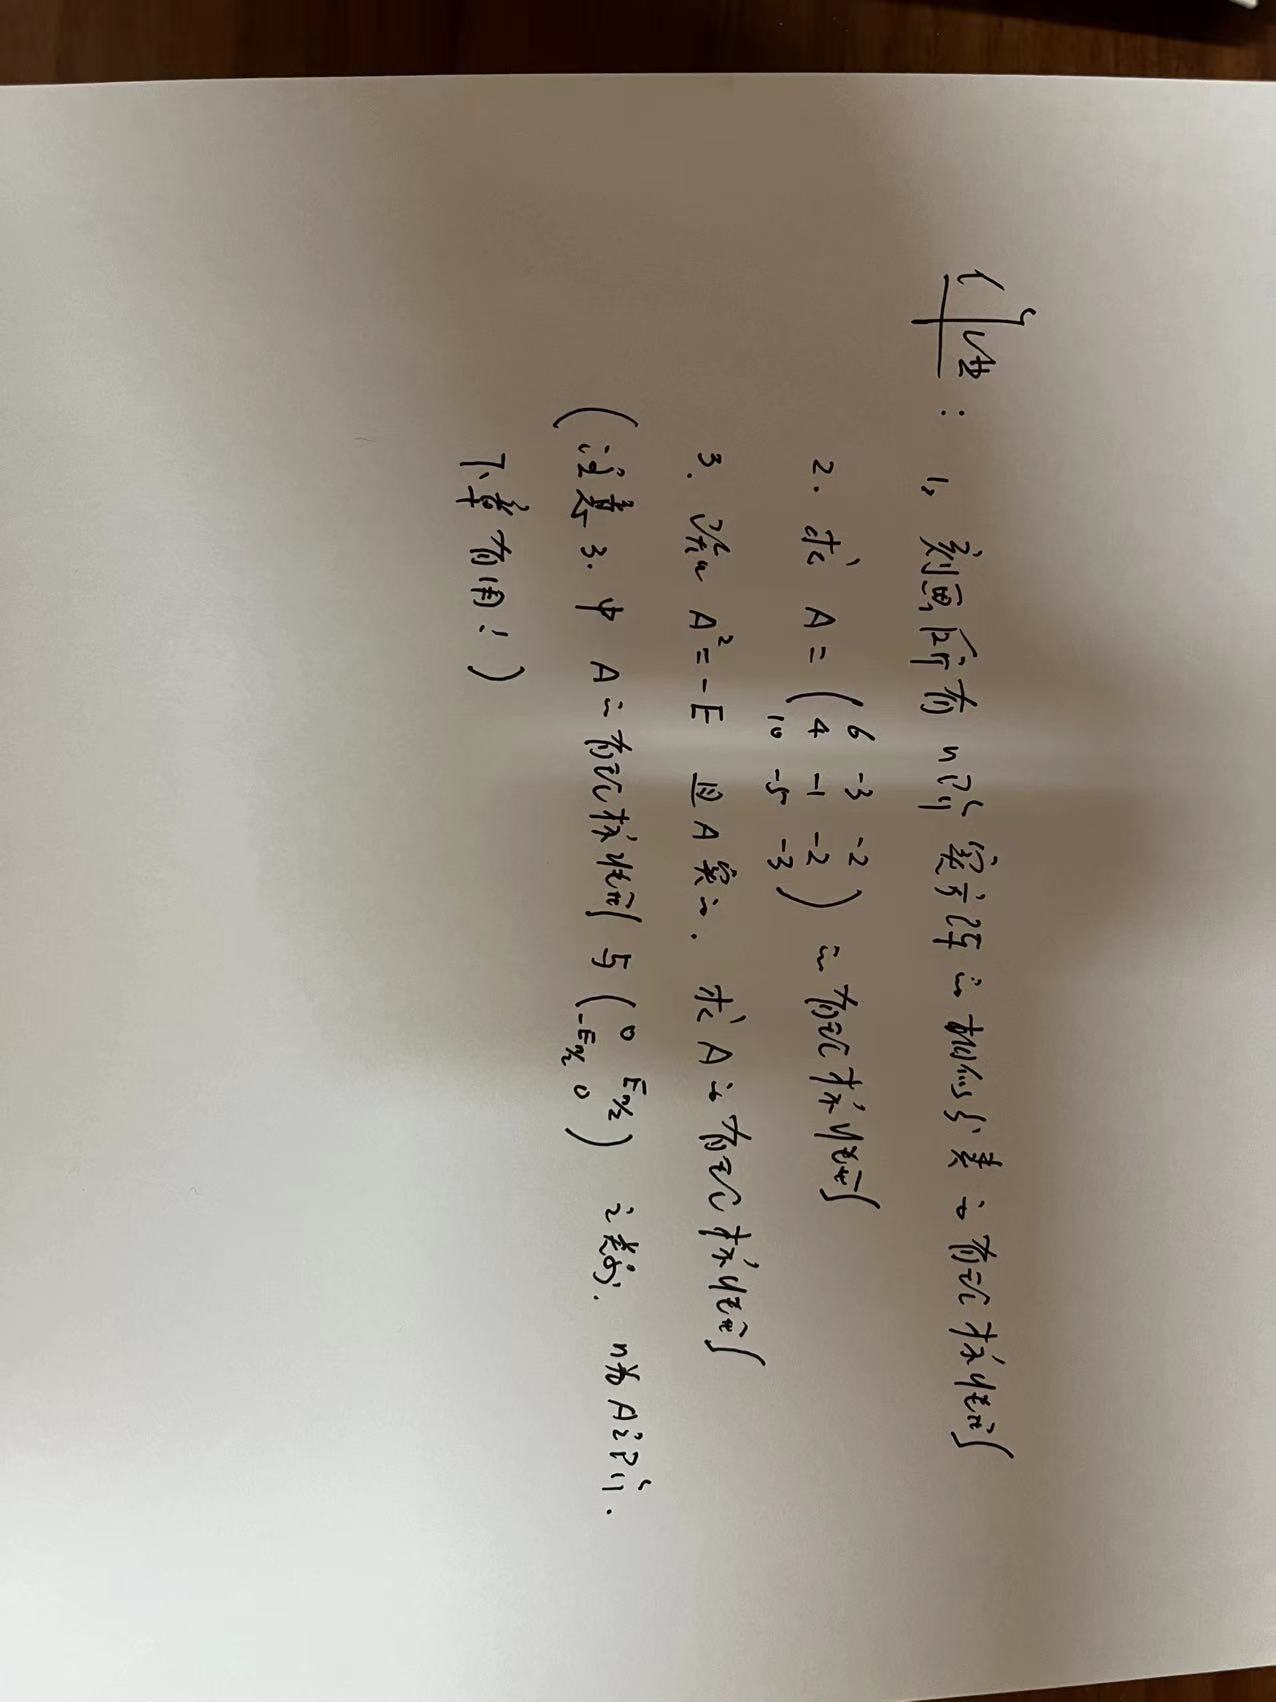 作业: 1. 刻画所有 n阶实方阵的相似分类的有理标准形
2. 求 A = ( 6 -3 -2
4 -1 -2
10 -5 -3 ) 的有理标准形
3. 设 A² = -E 且 A 实的. 求 A 的有理标准形
(注意 3. 中 A 的有理标准形与 ( 0 E n/2
-E n/2 0 ) 之差别. n为A之阶.
下章有用! )